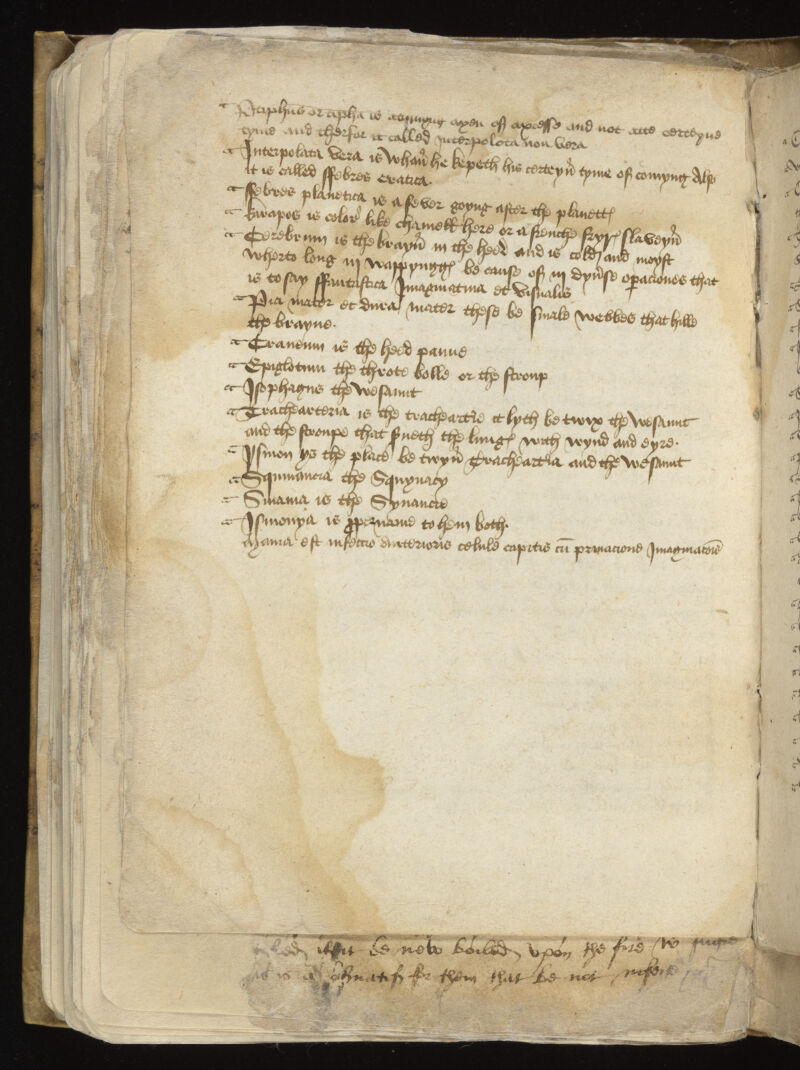 or is comyng ayen of axcesse and not atte certeyne
tyme and therfor it called Interpolata non vera
Interpolata vera is whan̄ he kepeth his certeyn̄ tyme of comyng Also
it is called ffebres eratica.
ffebres planetica is a fever goyng after the planett
karapos is color like chamell here or a frenche slaveyn̄
Cerebrum is the brayn̄ in the heed and is cold and moyst
wherto long iij wappyngg be cause of iij dyu͛se operaciones that
is to say ffantastica Imaginatiua et visualis
Pia mater et dura mater these be smale webbes that hille
the brayne.
Craneum is the heed panne
Epiglotum the throte bolle or the stroup
Isophagus the wesaunt
Trachearteria is the trachearterie it lyth be twyx the wesaunt
and the stroupe that the lung with wynd and eyre.
Ismon ys the place be twyn̄ trachearteria and the wesaunt
Squinancia the Squynacy
Sinania is the Synancie
Ismonya is ꝓpername to hem both.
Mania est infectio anterioris celule capitis cū priuacione Imaginacōis
it be new boiled upon the fire
is a for them that be not